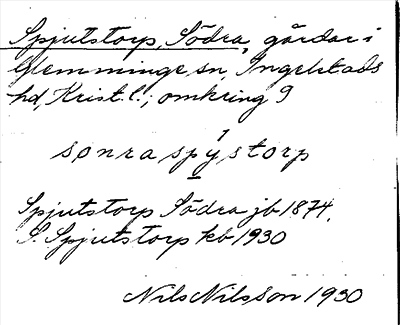 Spjutstorp, Södra, gårdar i
Glemminge sn, Ingelstads
hd, Krist. l.; omkring 9
sønra spýstorp
Spjutstorp Södra jb 1874.
S. Spjutstorp kb 1930
Nils Nilsson 1930